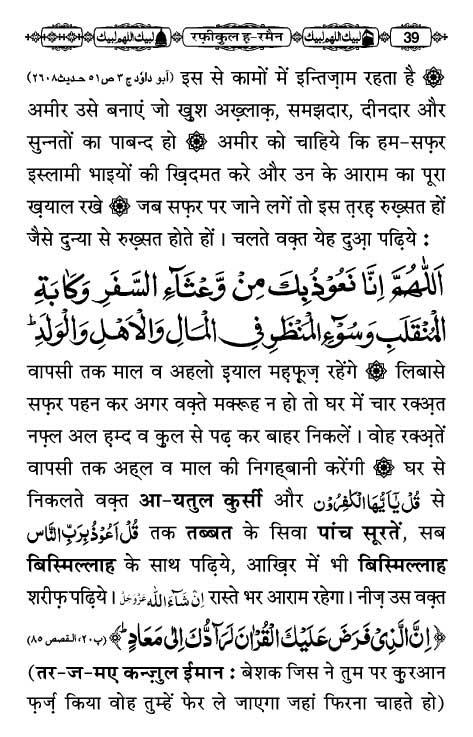 لبیك اللهم لبیك रफ़ीकुल ह-रमैन لبیك اللهم لبیك 39
(ابو داؤد ج ۳ ص ۵۱ حدیث ۲٦۰۸) इस से कामों में इन्तिज़ाम रहता है
अमीर उसे बनाएं जो खुश अख़्लाक़, समझदार, दीनदार और
सुन्नतों का पाबन्द हो अमीर को चाहिये कि हम-सफ़र
इस्लामी भाइयों की ख़िदमत करे और उन के आराम का पूरा
ख़याल रखे जब सफ़र पर जाने लगें तो इस त़रह़ रुख़्सत हों
जैसे दुन्या से रुख़्सत होते हों। चलते वक़्त येह दुआ़ पढ़िये :
اَللّٰهُمَّ اِنَّا نَعُوْذُ بِكَ مِنْ وَّعْثَآءِ السَّفَرِ وَكَاٰبَةِ
الْمُنْقَلَبِ وَسُوْٓءِ الْمَنْظَرِ فِی الْمَالِ وَالْاَهْلِ وَالْوَلَدِ ؕ
वापसी तक माल व अहलो इ़याल मह़फ़ूज़ रहेंगे लिबासे
सफ़र पहन कर अगर वक़्ते मक्रूह न हो तो घर में चार रक्अ़त
नफ़्ल अल ह़म्द व क़ुल से पढ़ कर बाहर निकलें। वोह रक्अ़तें
वापसी तक अह्ल व माल की निगह्बानी करेंगी घर से
निकलते वक़्त आ-यतुल कुर्सी और قُلْ یٰۤاَیُّهَا الْكٰفِرُوْنَ से
قُلْ اَعُوْذُ بِرَبِّ النَّاسِ तक तब्बत के सिवा पांच सूरतें, सब
बिस्मिल्लाह के साथ पढ़िये, आख़िर में भी बिस्मिल्लाह
शरीफ़ पढ़िये। اِنْ شَآءَ اللّٰه عَزَّوَجَلَّ रास्ते भर आराम रहेगा। नीज़ उस वक़्त
﴿ اِنَّ الَّذِیْ فَرَضَ عَلَیْكَ الْقُرْاٰنَ لَرَآدُّكَ اِلٰی مَعَادٍ ؕ ﴾ (پ۲۰، القصص ۸۵)
(तर-ज-मए कन्ज़ुल ईमान : बेशक जिस ने तुम पर क़ुरआन
फ़र्ज़ किया वोह तुम्हें फेर ले जाएगा जहां फिरना चाहते हो)